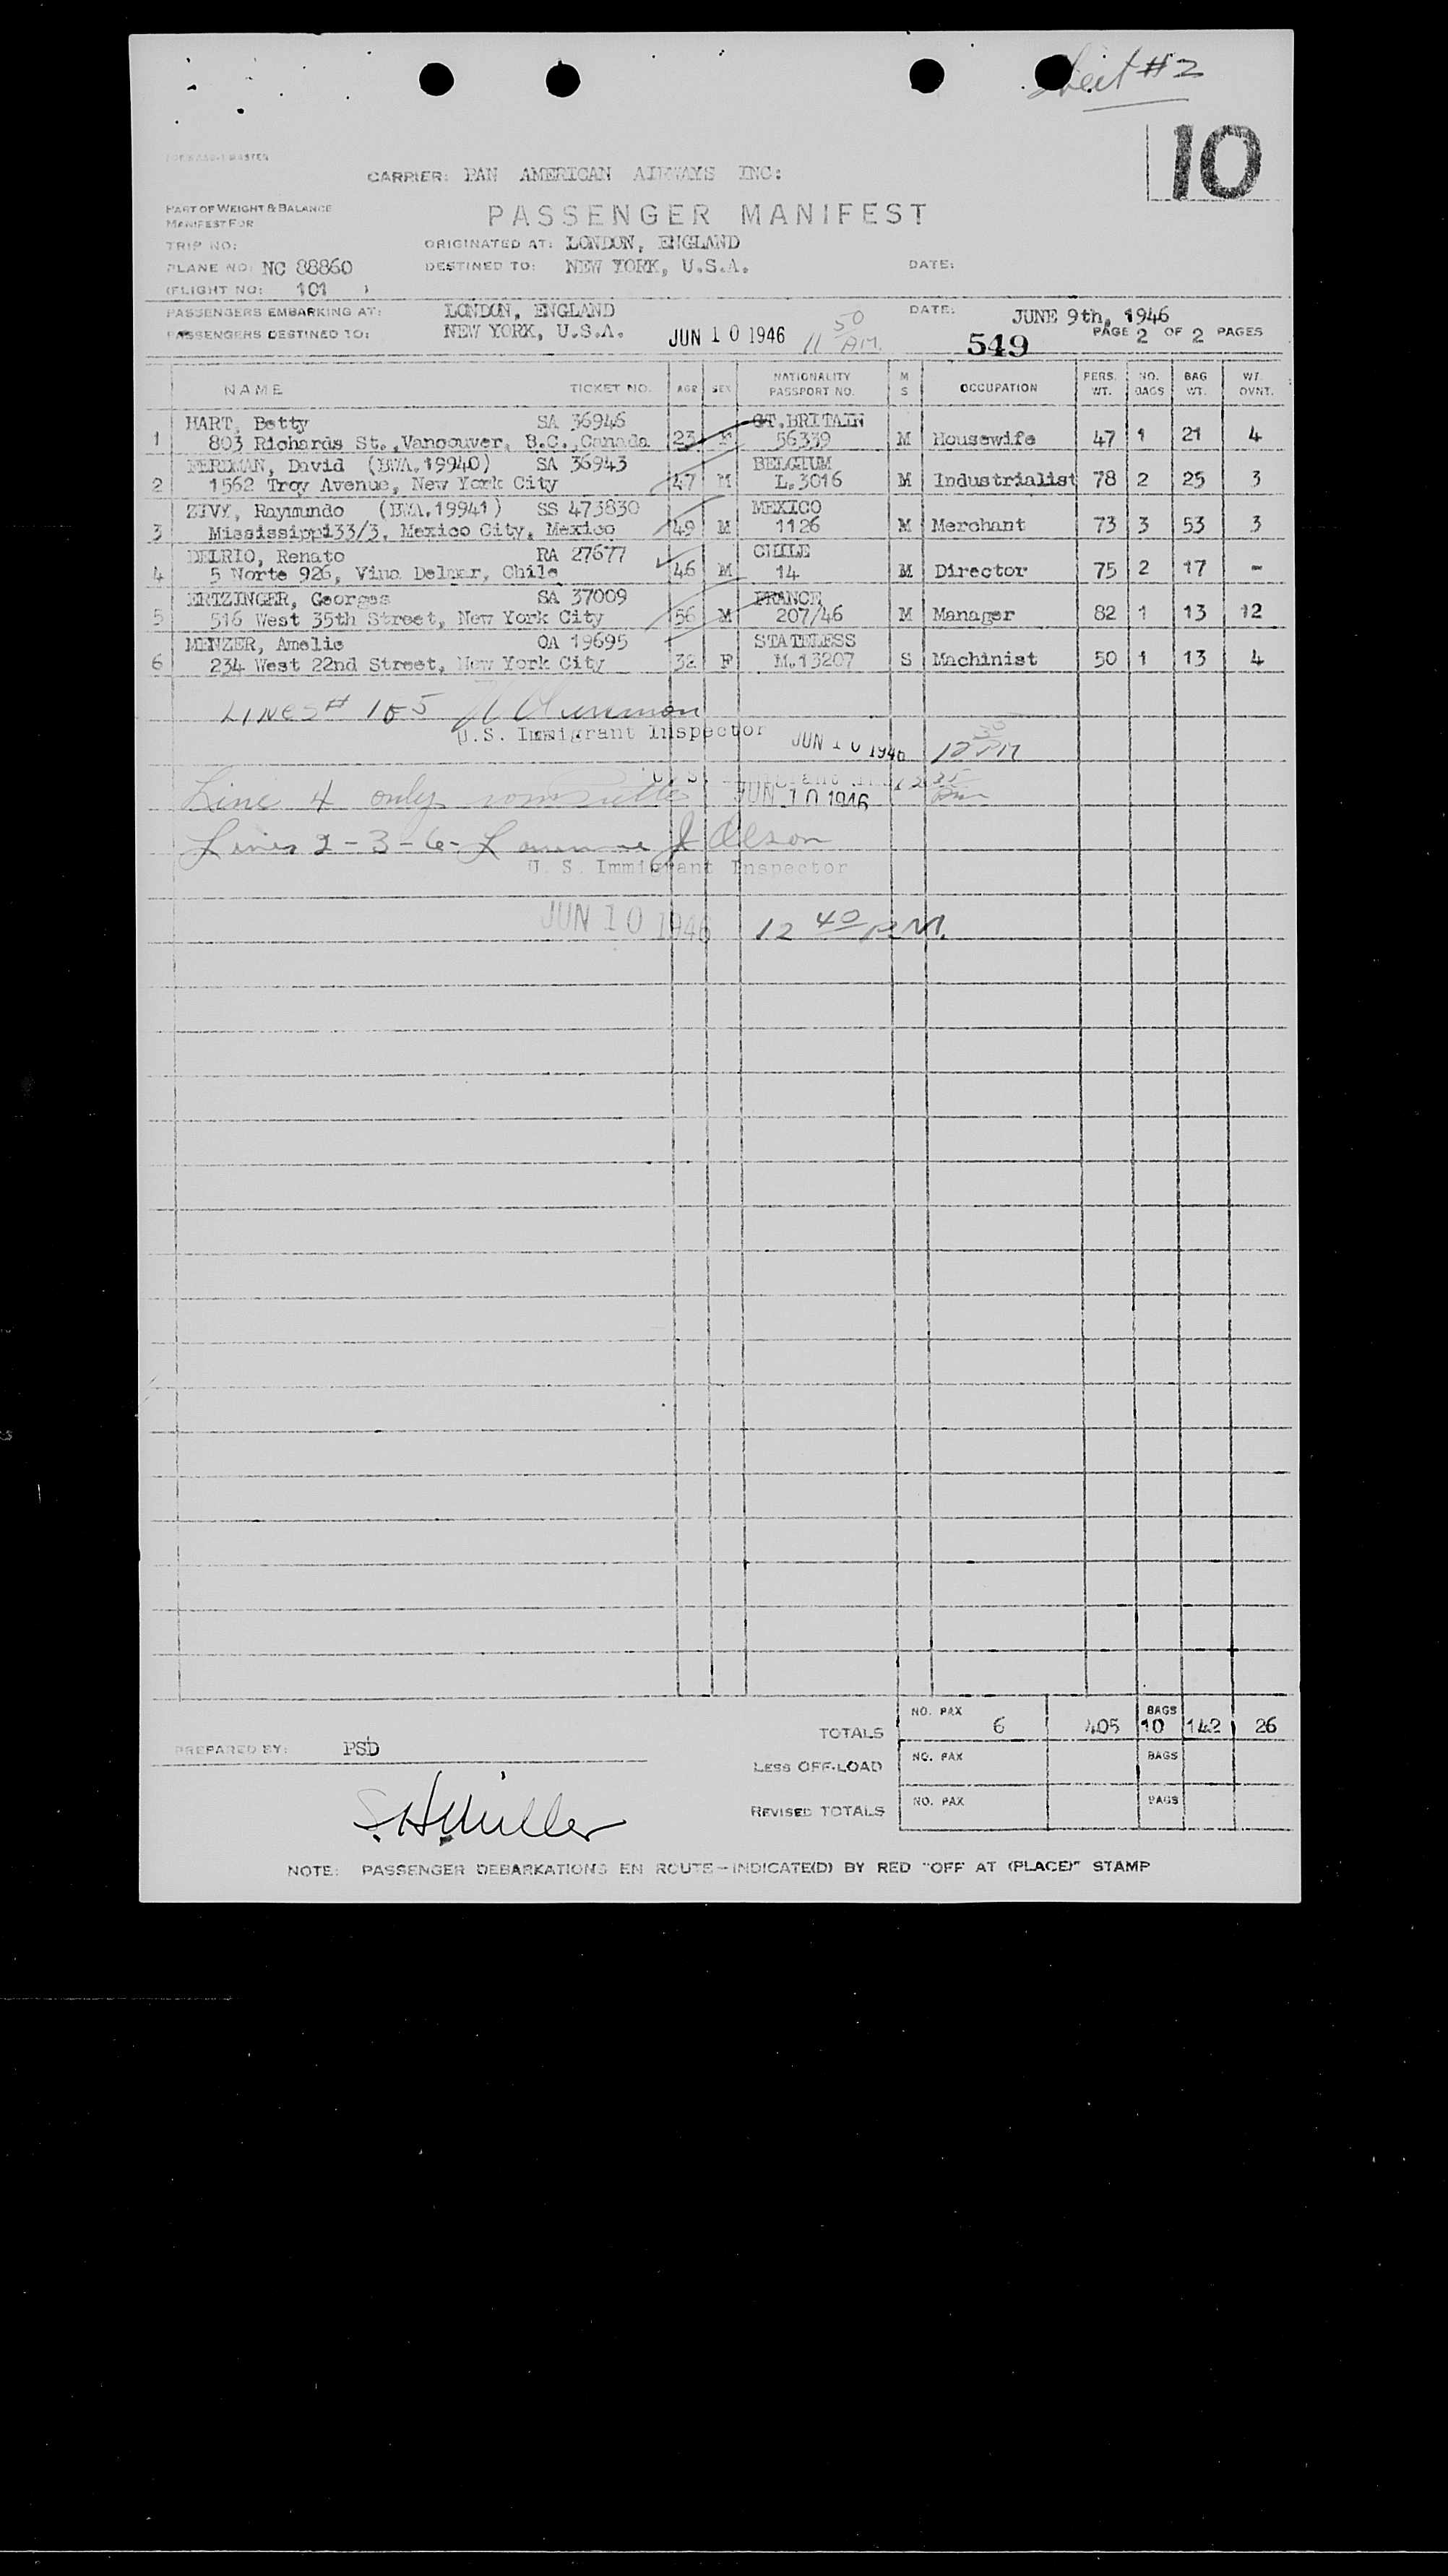 Sheet #2
10
CARRIER: PAN AMERICAN AIRWAYS INC:
PART OF WEIGHT & BALANCE
MANIFEST FOR
PASSENGER MANIFEST
TRIP NO:
ORIGINATED AT: LONDON, ENGLAND
PLANE NO: NC 88860
DESTINED TO: NEW YORK, U.S.A.
DATE:
(FLIGHT NO: 101 )
PASSENGERS EMBARKING AT: LONDON, ENGLAND
DATE: JUNE 9th, 1946
PASSENGERS DESTINED TO: NEW YORK, U.S.A. JUN 10 1946 11 50 AM.
549 PAGE 2 OF 2 PAGES
NAME TICKET NO. AGE SEX NATIONALITY PASSPORT NO. M S OCCUPATION PERS. WT. NO. BAGS BAG WT. WT. OVNT.
HART, Betty SA 36946 GT.BRITAIN
1 803 Richards St.,Vancouver, B.C.,Canada 23 F 56339 M Housewife 47 1 21 4
FERDMAN, David (BWA.19940) SA 36943 BELGIUM
2 1562 Troy Avenue, New York City 47 M L.3016 M Industrialist 78 2 25 3
ZIVY, Raymundo (BWA.19941) SS 473830 MEXICO
3 Mississippi33/3, Mexico City, Mexico 49 M 1126 M Merchant 73 3 53 3
DELRIO, Renato RA 27677 CHILE
4 5 Norte 926, Vina Delmar, Chile 46 M 14 M Director 75 2 17 -
ERTZINGER, Georges SA 37009 FRANCE
5 516 West 35th Street, New York City 56 M 207/46 M Manager 82 1 13 12
MENZER, Amelie OA 19695 STATELESS
6 234 West 22nd Street, New York City 32 F M.13207 S Machinist 50 1 13 4
LINES # 1 & 5
U.S. Immigrant Inspector JUN 10 1946 12 30 PM
Line 4 only JUN 10 1946 12 35 PM
Lines 2-3-6- J Olson
U. S. Immigrant Inspector
JUN 10 1946 12 40 P.M.
TOTALS NO. PAX 6 405 BAGS 10 142 26
PREPARED BY: PSD
LESS OFF-LOAD NO. PAX BAGS
REVISED TOTALS NO. PAX BAGS
S.H.Miller
NOTE: PASSENGER DEBARKATIONS EN ROUTE—INDICATE(D) BY RED "OFF AT (PLACE)" STAMP